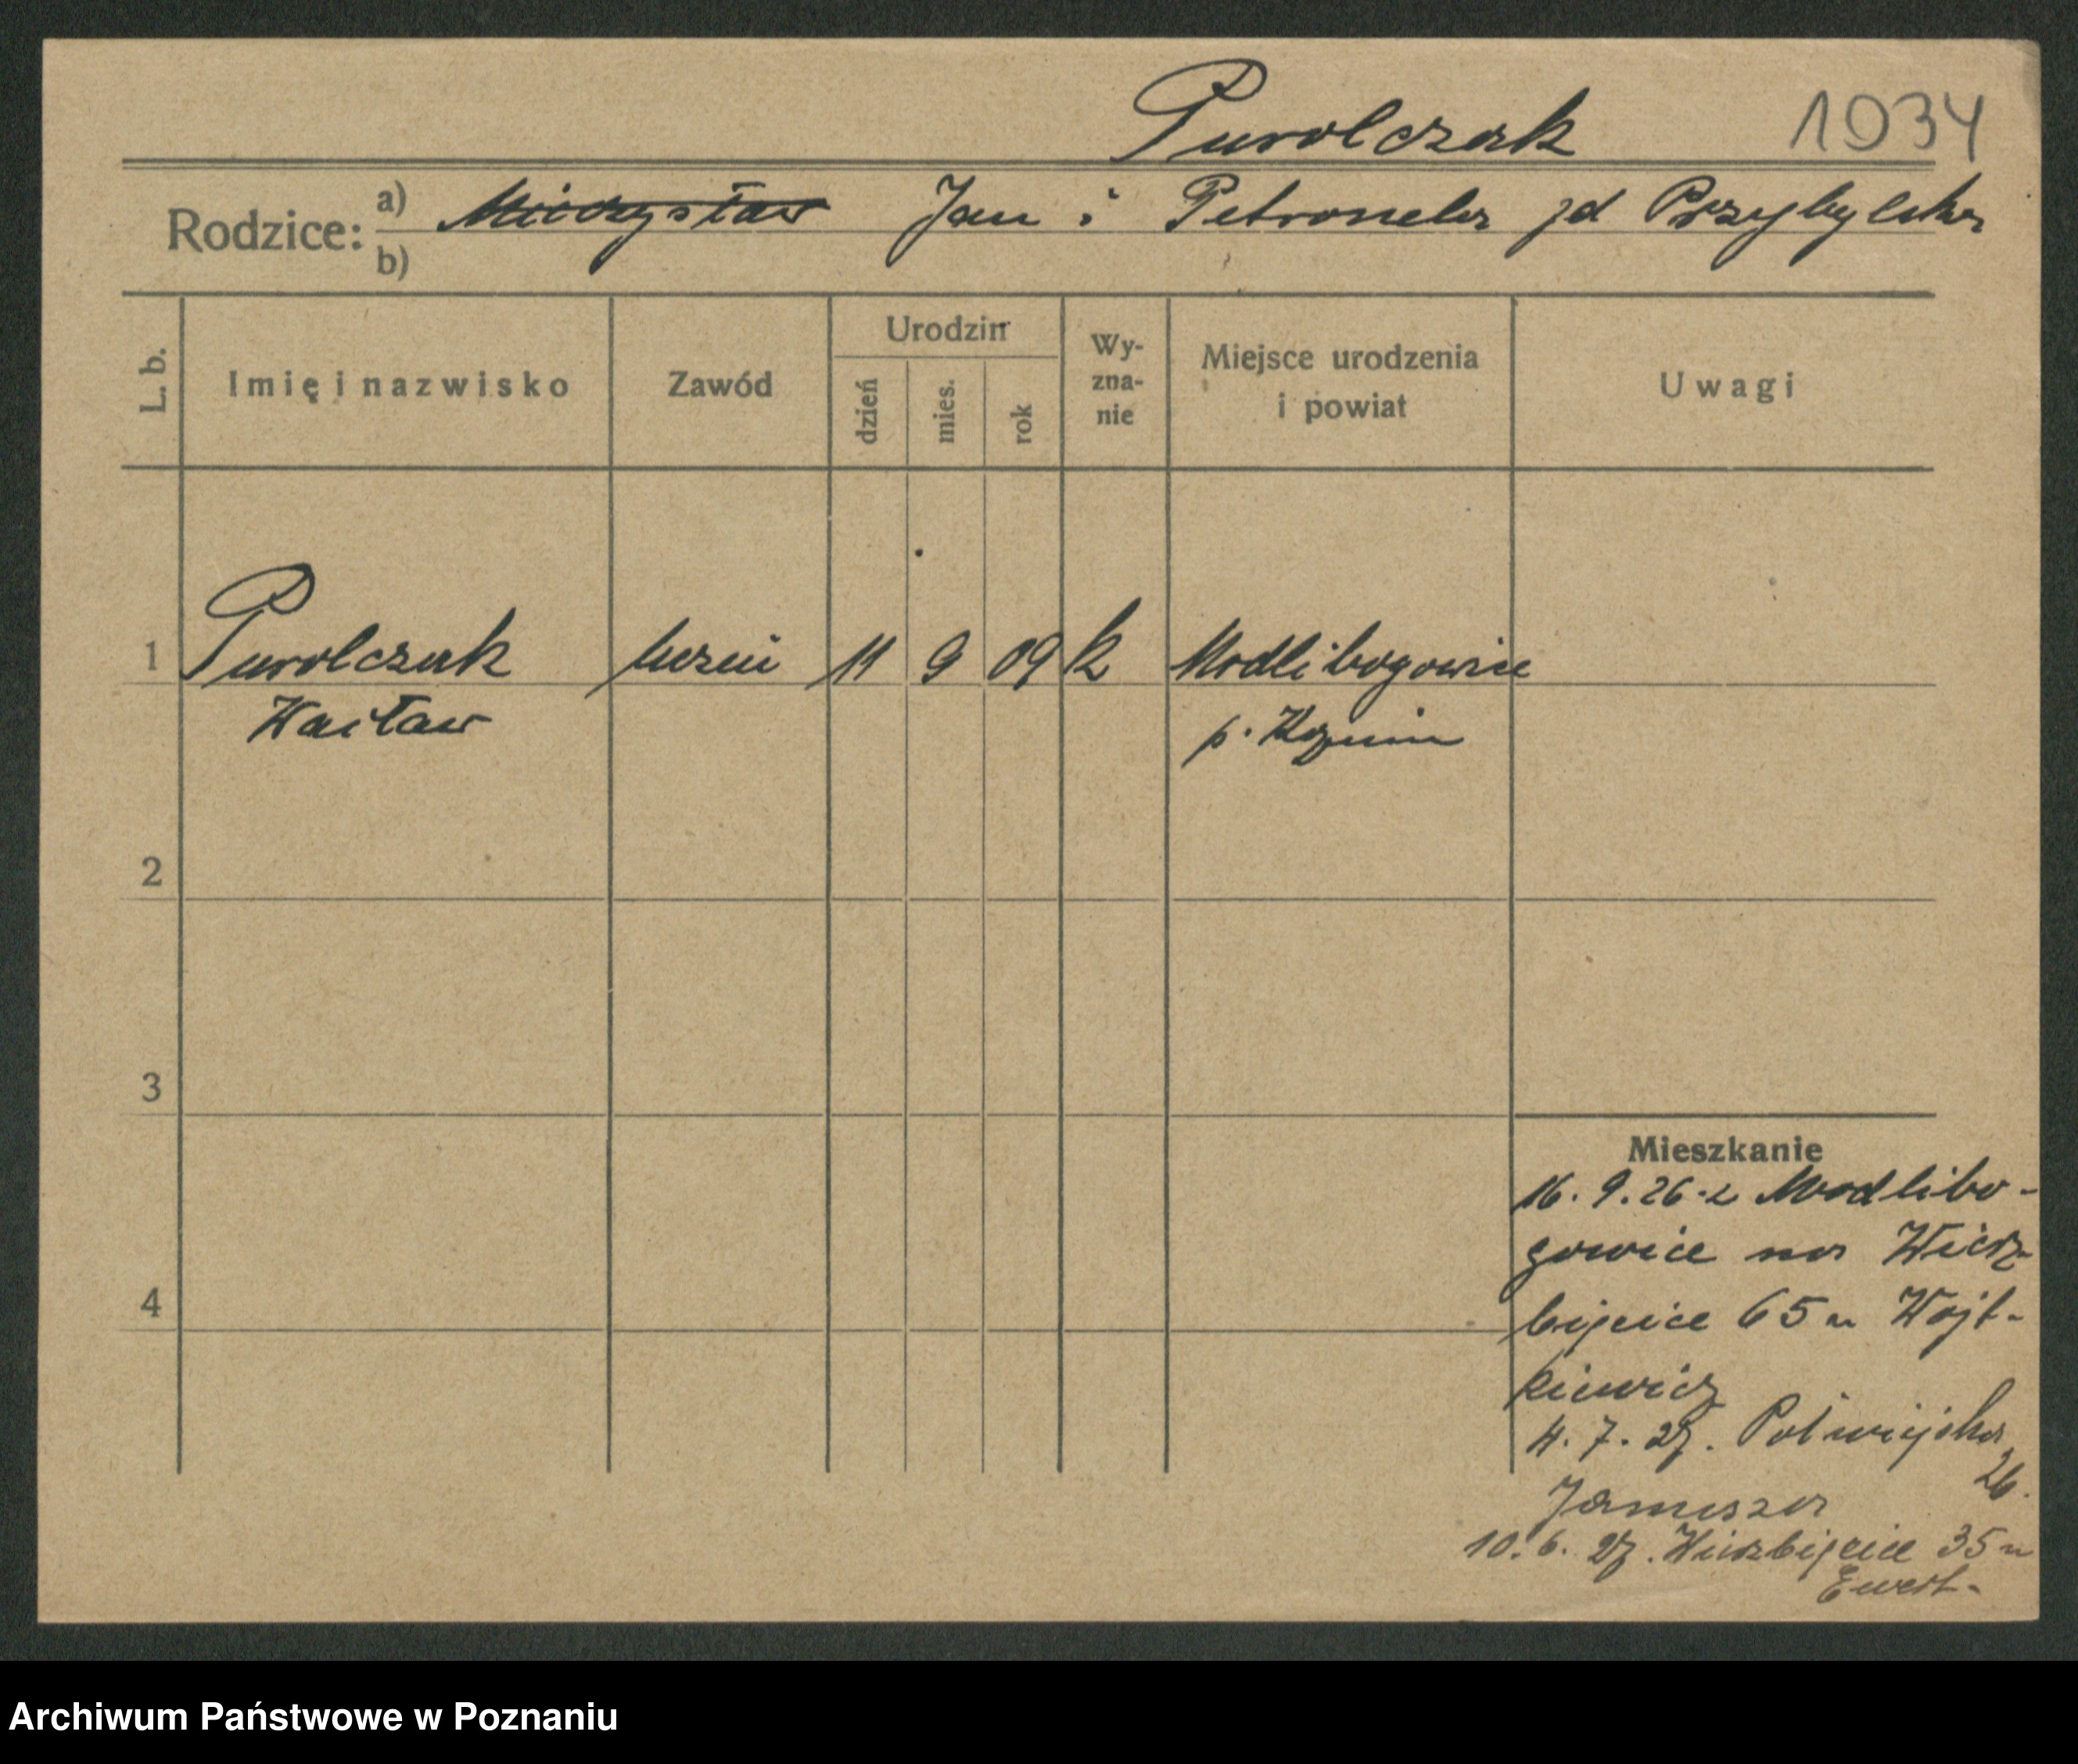 Purolczak 1034
Rodzice: a) Mieczysław Jan i Petronela zd Przybylska
b)
L. b. Imię i nazwisko Zawód Urodzin dzień mies. rok Wy-zna-nie Miejsce urodzenia i powiat Uwagi
1 Purolczak uczeń 11 9 09 k Modlibogowice
Wacław p. Konin
2
3
Mieszkanie
16. 9. 26. z Modlibo-
gowice na Wierz-
4
bięcice 65 u Wojt-
kiewicz
4. 7. 27. Półwiejska
26.
Janusza
10. 6. 27. Wierzbięcice 35 u
Ewert.
Archiwum Państwowe w Poznaniu